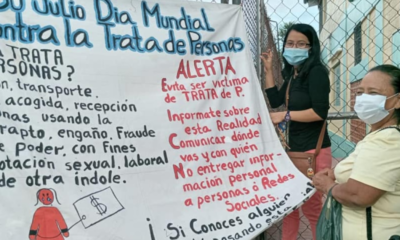 30 Julio Día Mundial
contra la Trata de Personas
A TRATA
RSONAS?
ón, transporte,
acogida, recepción
rsonas usando la
rapto, engaño, Fraude
e Poder, con Fines
otación sexual, laboral
de otra indole.
$
ALERTA
Evita ser víctima
de TRATA de P.
Informate sobre
esta Realidad
Comunicar dónde
vas y con quién
No entregar infor-
mación personal
a personas ó Redes
Sociales.
¡Si Conoces alguien